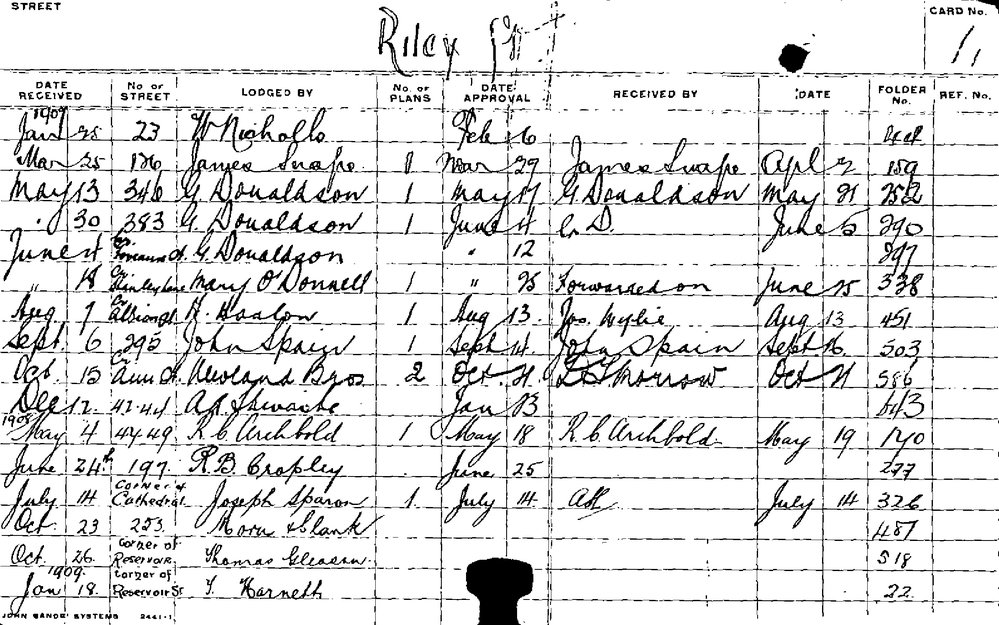 STREET
Riley St
CARD No.
1.
DATE RECEIVED No. OF STREET LODGED BY No. OF PLANS DATE APPROVAL RECEIVED BY DATE FOLDER No. REF. No.
1907
Jan 25 23 W Nicholls Feb 6
Mar 25 176 James Snape 1 Mar 27 James Snape Apl 2 159
May 13 346 G Donaldson 1 May 17 G Donaldson May 21 252
" 30 383 G. Donaldson 1 June 4 G. D. June 5 290
June 4 Cr. G Donaldson " 12 297
" 18 Cr. Stanley Lane Mary O'Donnell 1 " 25 Forwarded on June 25 338
Aug 7 Cr Albion St 1 Aug 13. Jos. Wylie Aug 13 451
Sept. 6 295 John Spain 1 Sept 14. John Spain Sept 16. 503
Oct. 15 Cr. Ann St. Bros 2 Oct. 21 Morrow Oct 21 586
Dec 12. 42-44 Jan 13 643
1908
May 4 47-49 R. C. Archbold 1 May 18 R. C. Archbold. May 19 170
June 24th 197. R. B. Cropley June 25 277
July 14 Corner of Cathedral Joseph Sparon 1 July 14 July 14 326
Oct 23 253 487
Oct. 26. Corner of Reservoir Thomas Gleeson 518
1909.
Jan 18. Corner of Reservoir St T. Harnett 22
JOHN SANDS' SYSTEMS 2441-1